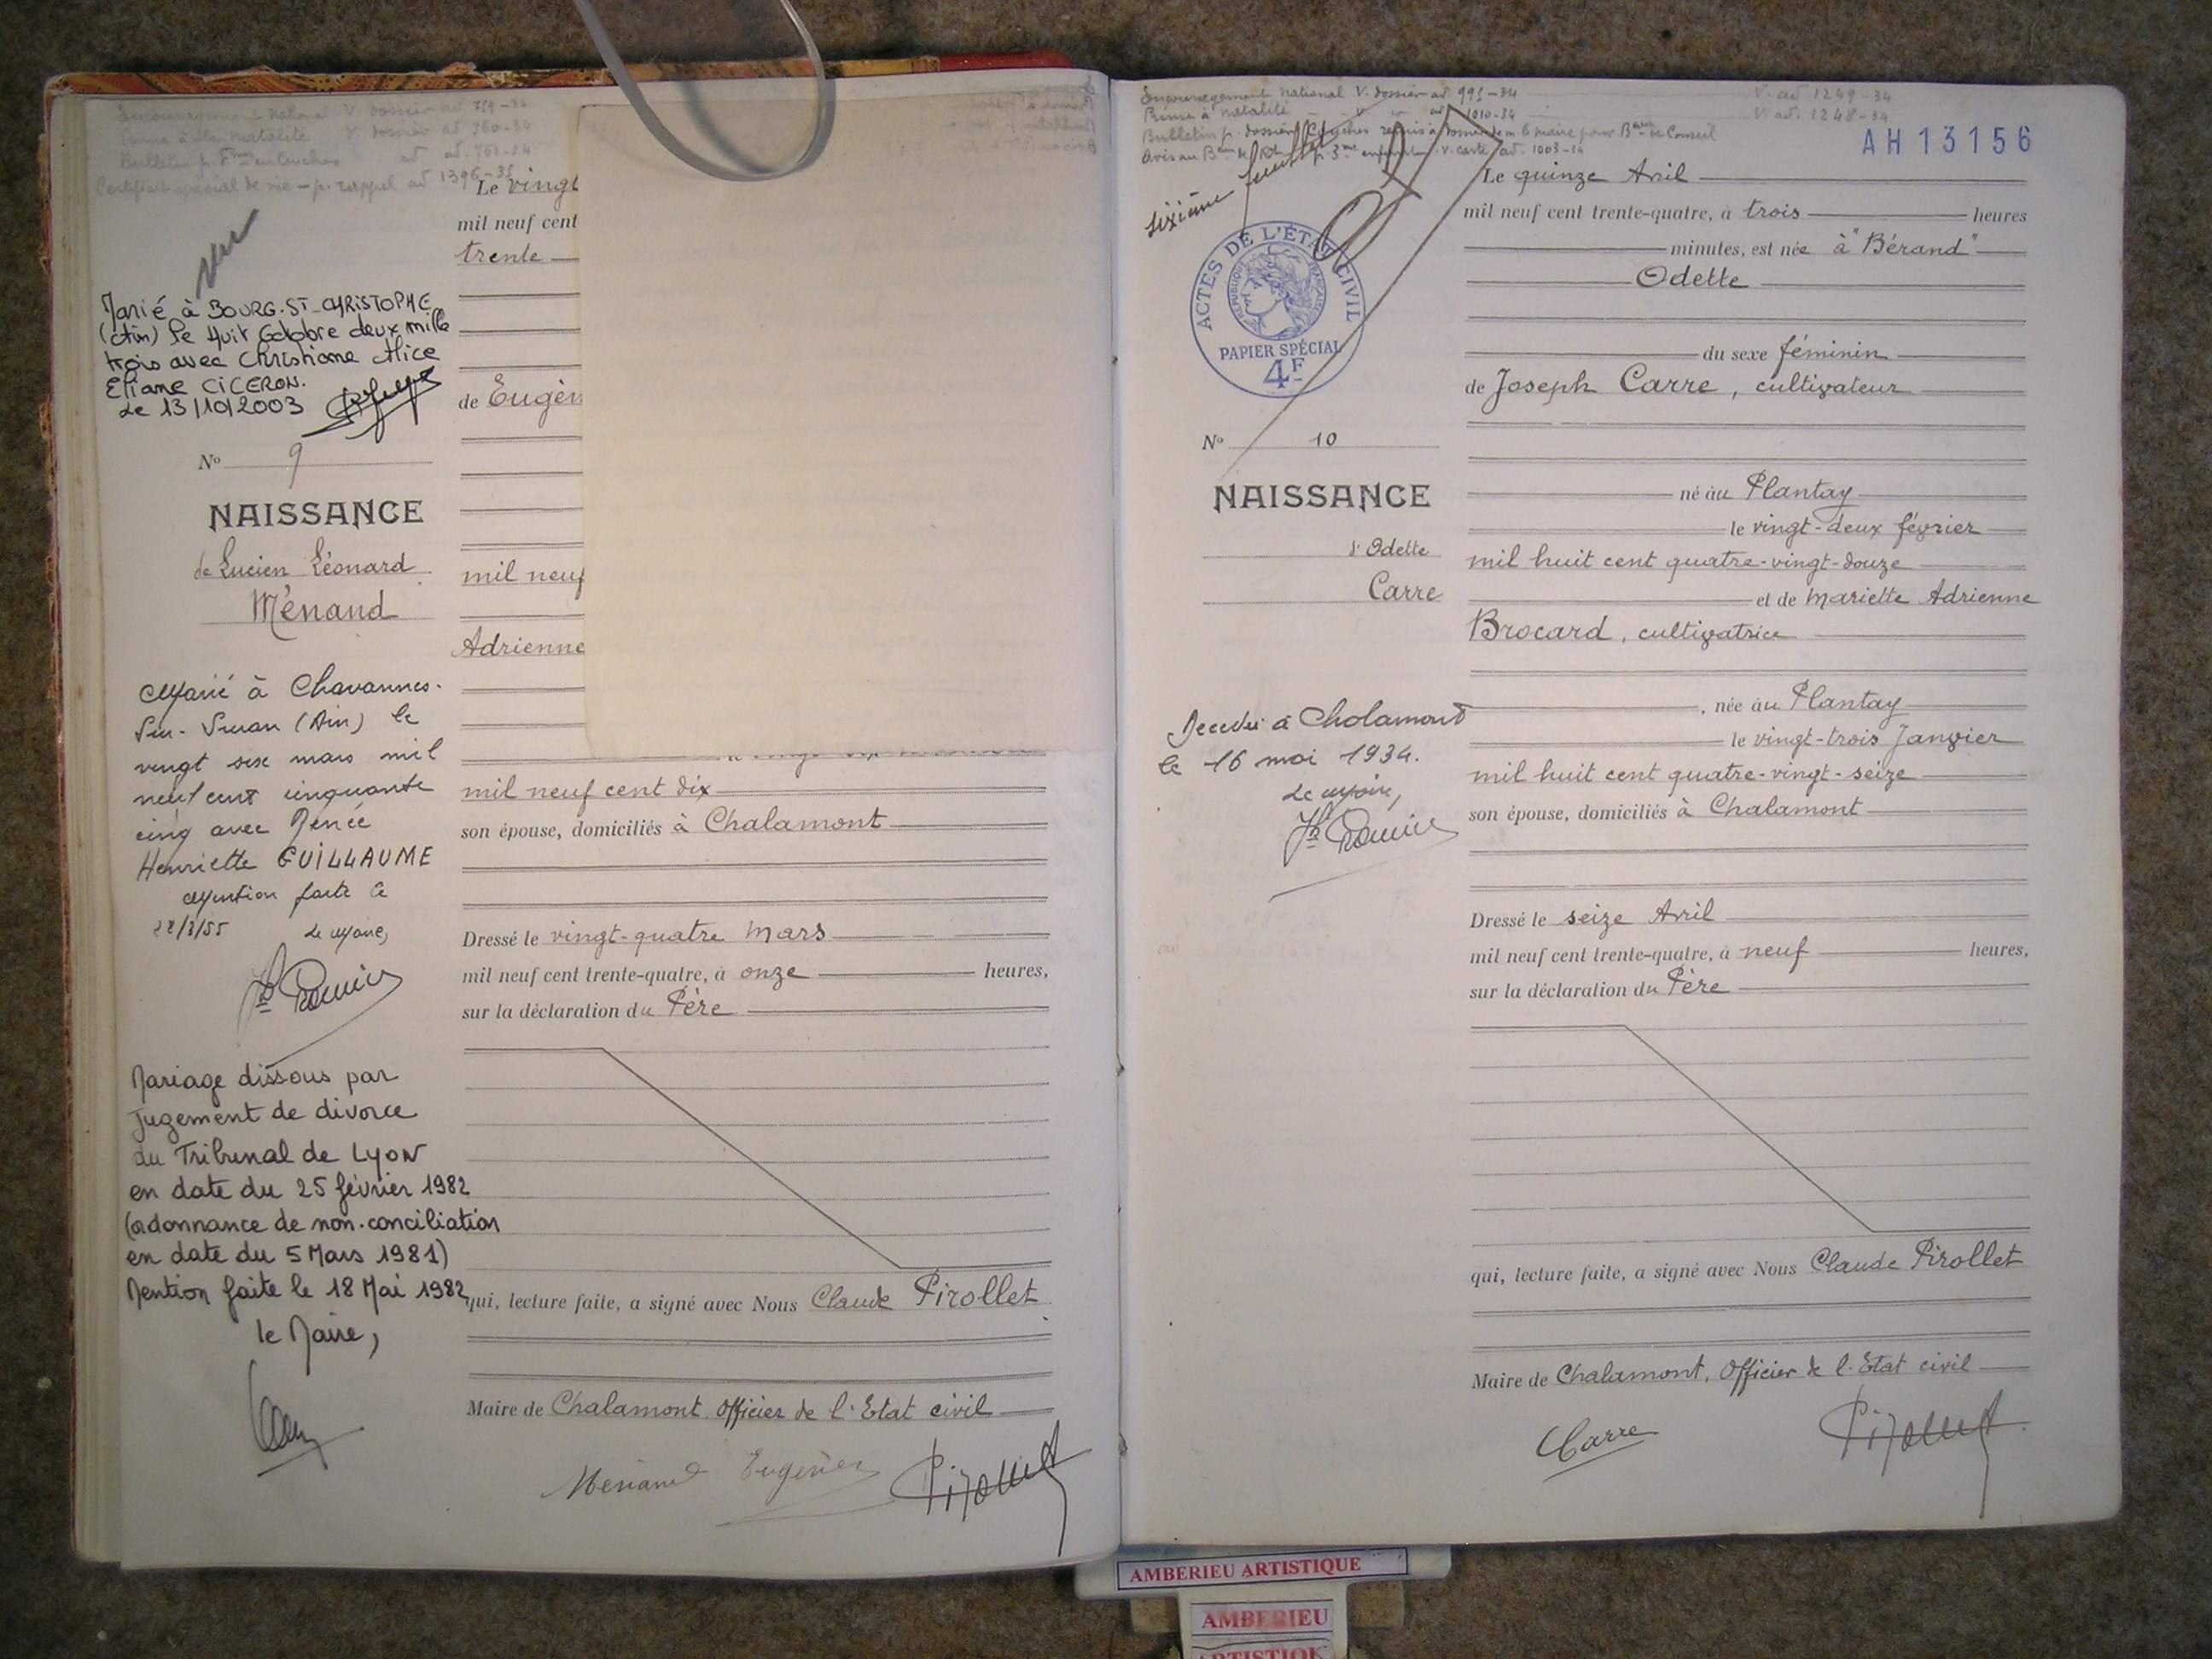 Encouragement National V. dossier ad 759-34
Prime à la Natalité V. dossier ad 760-34
Bulletin p. Fmes en Couches ad ad. 761-34
Certificat spécial de vie - p. rappel ad 1396-35
Marié à BOURG-ST-CHRISTOPHE
(Ain) le Huit Octobre deux mille
trois avec Christiane Alice
Eliane CICERON.
Le 13/10/2003
No 9
NAISSANCE
de Lucien Léonard
Ménand
Marié à Chavannes-
Sur-Suran (Ain) le
vingt six mars mil
neuf cent cinquante
cinq avec Renée
Henriette GUILLAUME
Mention faite le
/3/55 Le Maire,
Mariage dissous par
Jugement de divorce
du Tribunal de Lyon
en date du 25 février 1982
(ordonnance de non-conciliation
en date du 5 Mars 1981)
Mention faite le 18 Mai 1982
le Maire,
Le vingt
mil neuf cent
trente
de Eugèn
mil neuf
Adrienne
mil neuf cent dix
son épouse, domiciliés à Chalamont
Dressé le vingt-quatre Mars
mil neuf cent trente-quatre, à onze heures,
sur la déclaration du Père
qui, lecture faite, a signé avec Nous Claude Pirollet
Maire de Chalamont, Officier de l'Etat civil
Menand Eugène Pirollet
Encouragement National V. dossier ad 991-34 V. ad 1249-34
Prime à Natalité V. ad 1010-34 V. ad. 1248-34
AH13156
sixième feuillet
ACTES DE L'ÉTAT CIVIL
RÉPUBLIQUE FRANÇAISE
PAPIER SPÉCIAL
4F
No 10
NAISSANCE
d'Odette
Carre
Décédée à Chalamont
le 16 mai 1934.
Le Maire,
Le quinze Avril
mil neuf cent trente-quatre, à trois heures
minutes, est née à "Bérand"
Odette
du sexe féminin
de Joseph Carre, cultivateur
né au Plantay
le vingt-deux février
mil huit cent quatre-vingt-douze
et de Mariette Adrienne
Brocard, cultivatrice
, née au Plantay
le vingt-trois Janvier
mil huit cent quatre-vingt-seize
son épouse, domiciliés à Chalamont
Dressé le seize Avril
mil neuf cent trente-quatre, à neuf heures,
sur la déclaration du Père
qui, lecture faite, a signé avec Nous Claude Pirollet
Maire de Chalamont, Officier de l'Etat civil
Carre Pirollet
AMBERIEU ARTISTIQUE
AMBERIEU
ARTISTIQUE